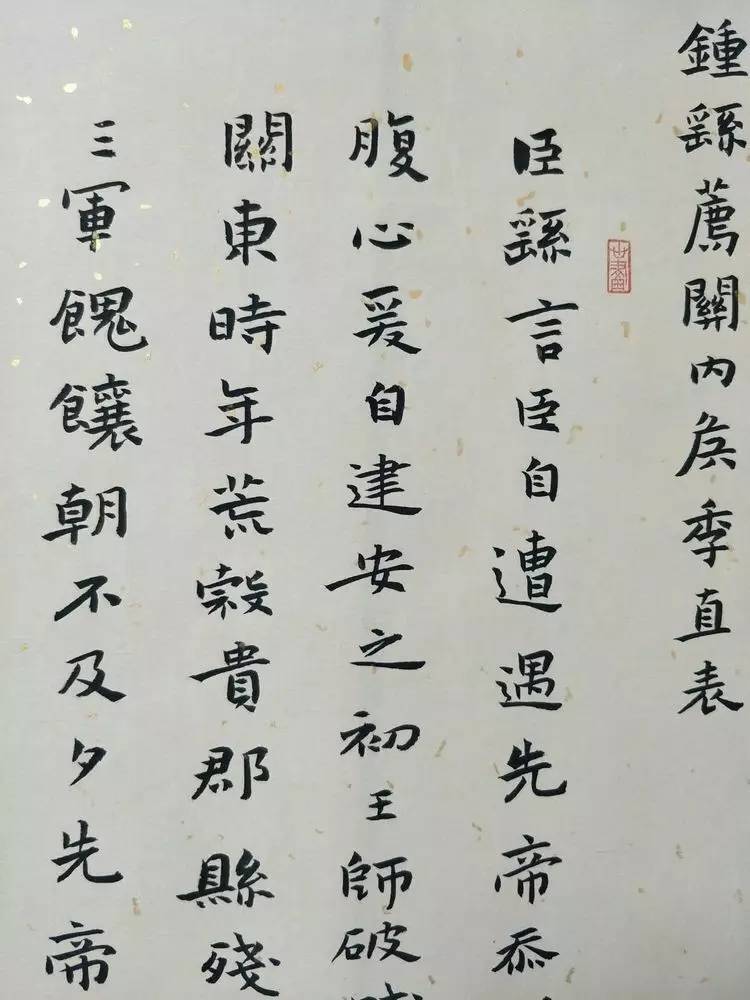 鍾繇薦關内矦季直表
臣繇言臣自遭遇先帝忝
腹心爰自建安之初王師破賊
關東時年荒穀貴郡縣殘
三軍餽饟朝不及夕先帝